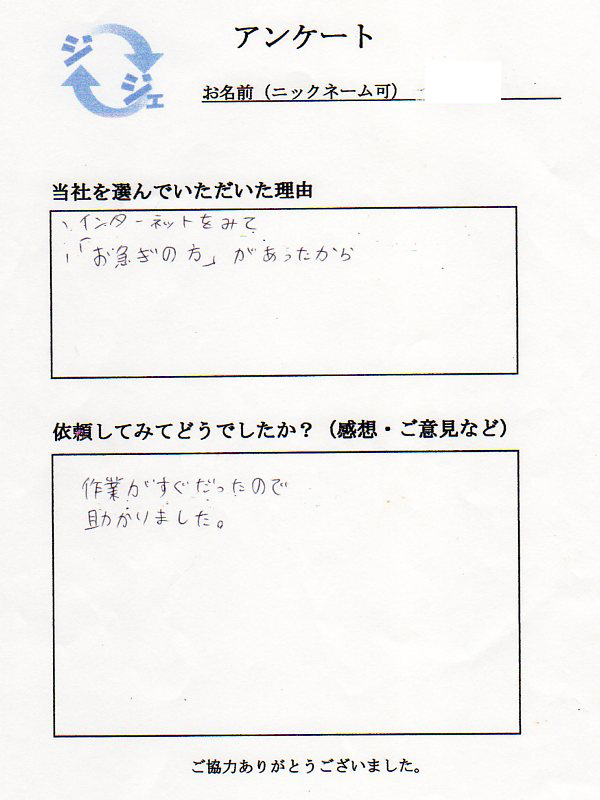 ジジェ
アンケート
お名前（ニックネーム可）
当社を選んでいただいた理由
、インターネットをみて
、「お急ぎの方」があったから
依頼してみてどうでしたか？（感想・ご意見など）
作業がすぐだったので
助かりました。
ご協力ありがとうございました。